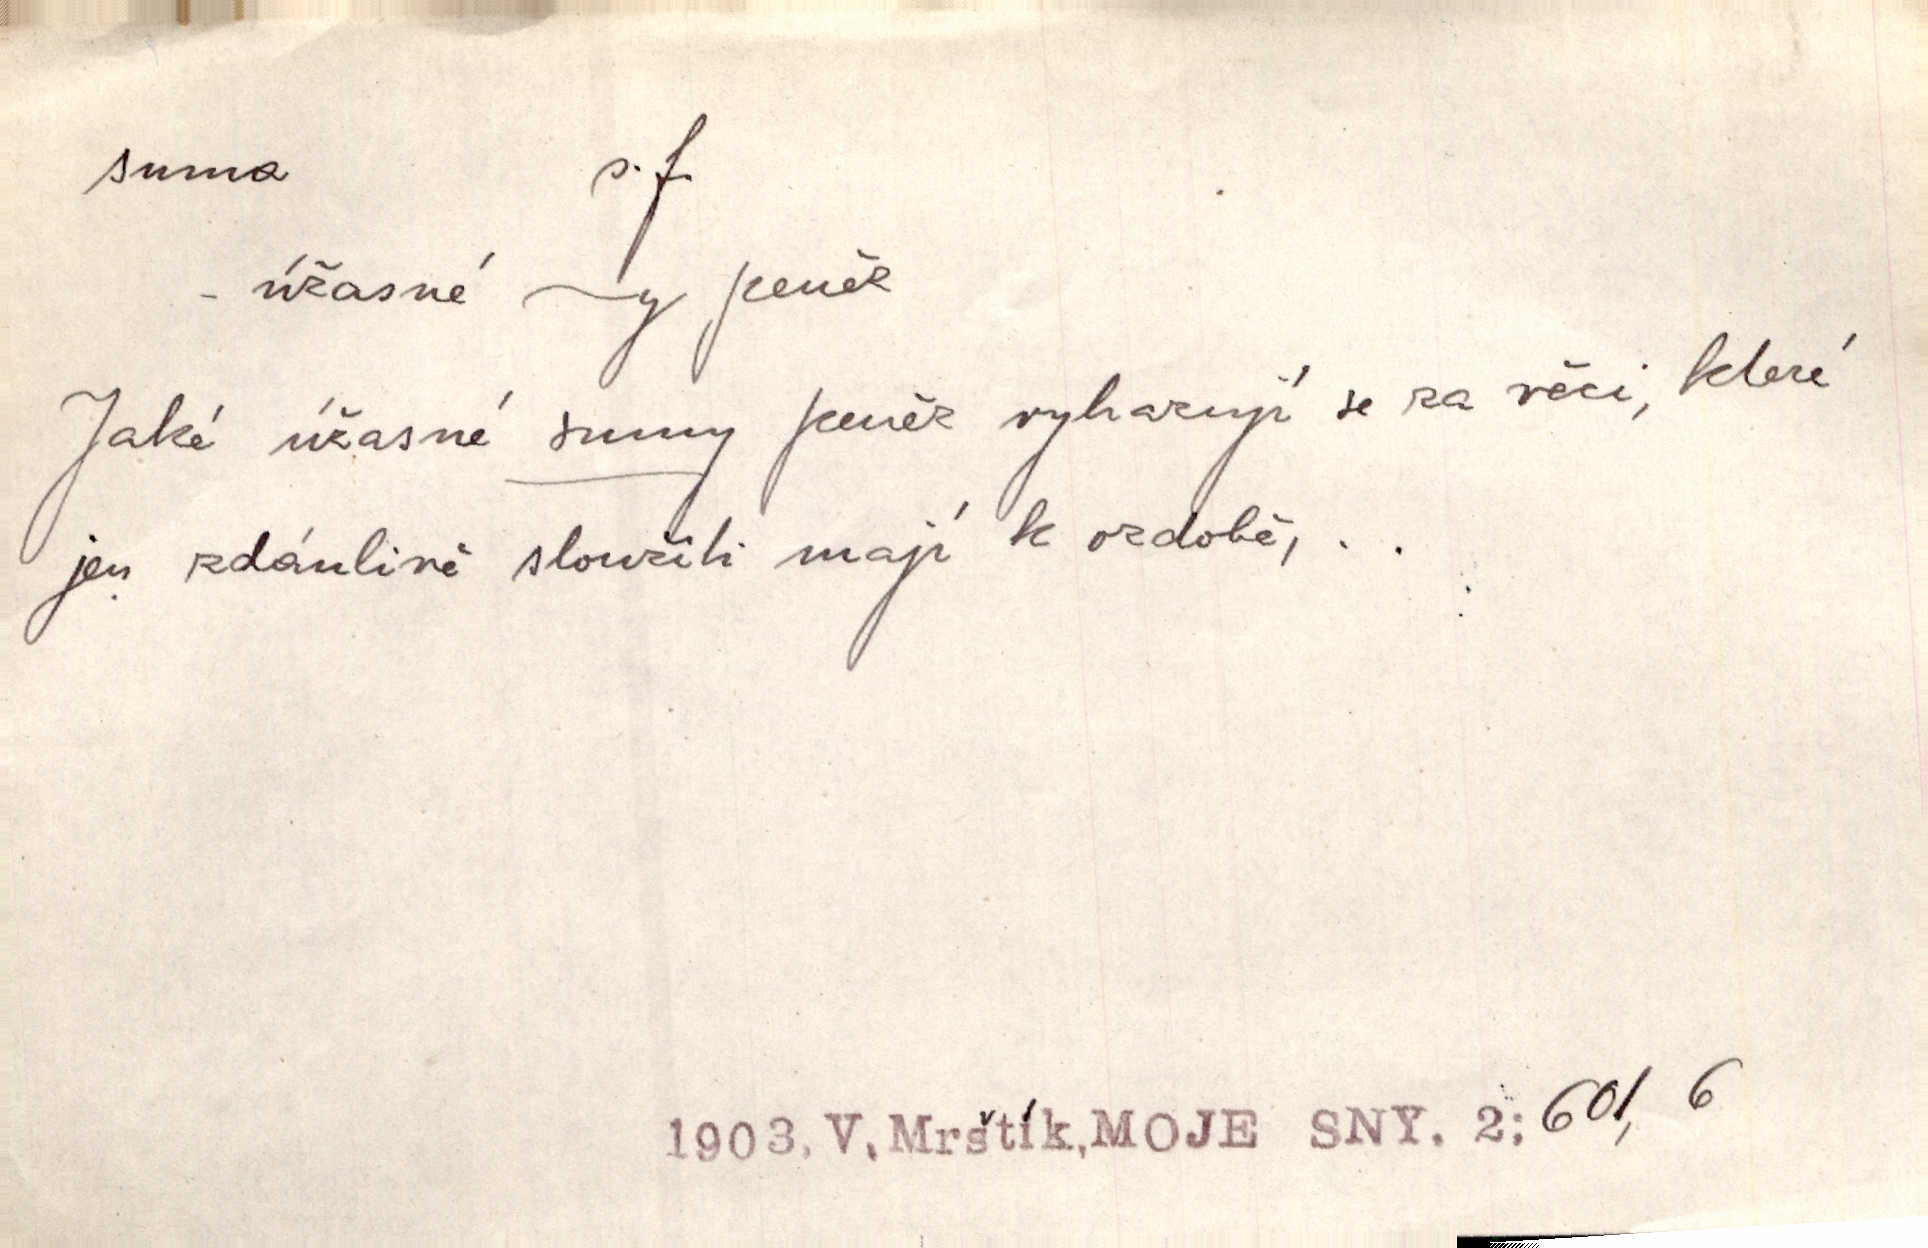 suma s. f.
- úžasné ~y peněz
Jaké úžasné sumy peněz vyhazují se za věci, které
jen zdánlivě sloužiti mají k ozdobě, . .
1903, V. Mrštík, MOJE SNY. 2; 601, 6